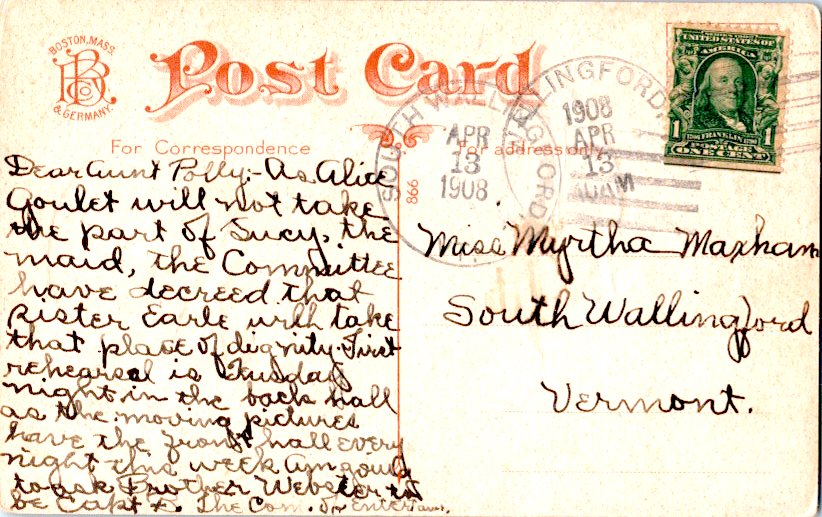 BOSTON, MASS.
B Co
& GERMANY.
Post Card
For Correspondence
For address only
866
SOUTH WALLINGFORD
APR
13
1908
WALLINGFORD,
1908
APR
13
10AM
UNITED STATES OF
AMERICA
1 FRANKLIN 1
POSTAGE
ONE CENT
Dear Aunt Polly:- As Alice
Goulet will not take
the part of Lucy, the
maid, the Committee
have decreed that
sister Earle will take
that place of dignity. First
rehearsal is Tuesday
night in the back hall
as the moving pictures
have the front hall every
night this week Am going
to ask Brother Webster to
be Capt B. The Com. on
Miss Myrtha Maxham
South Wallingford
Vermont.